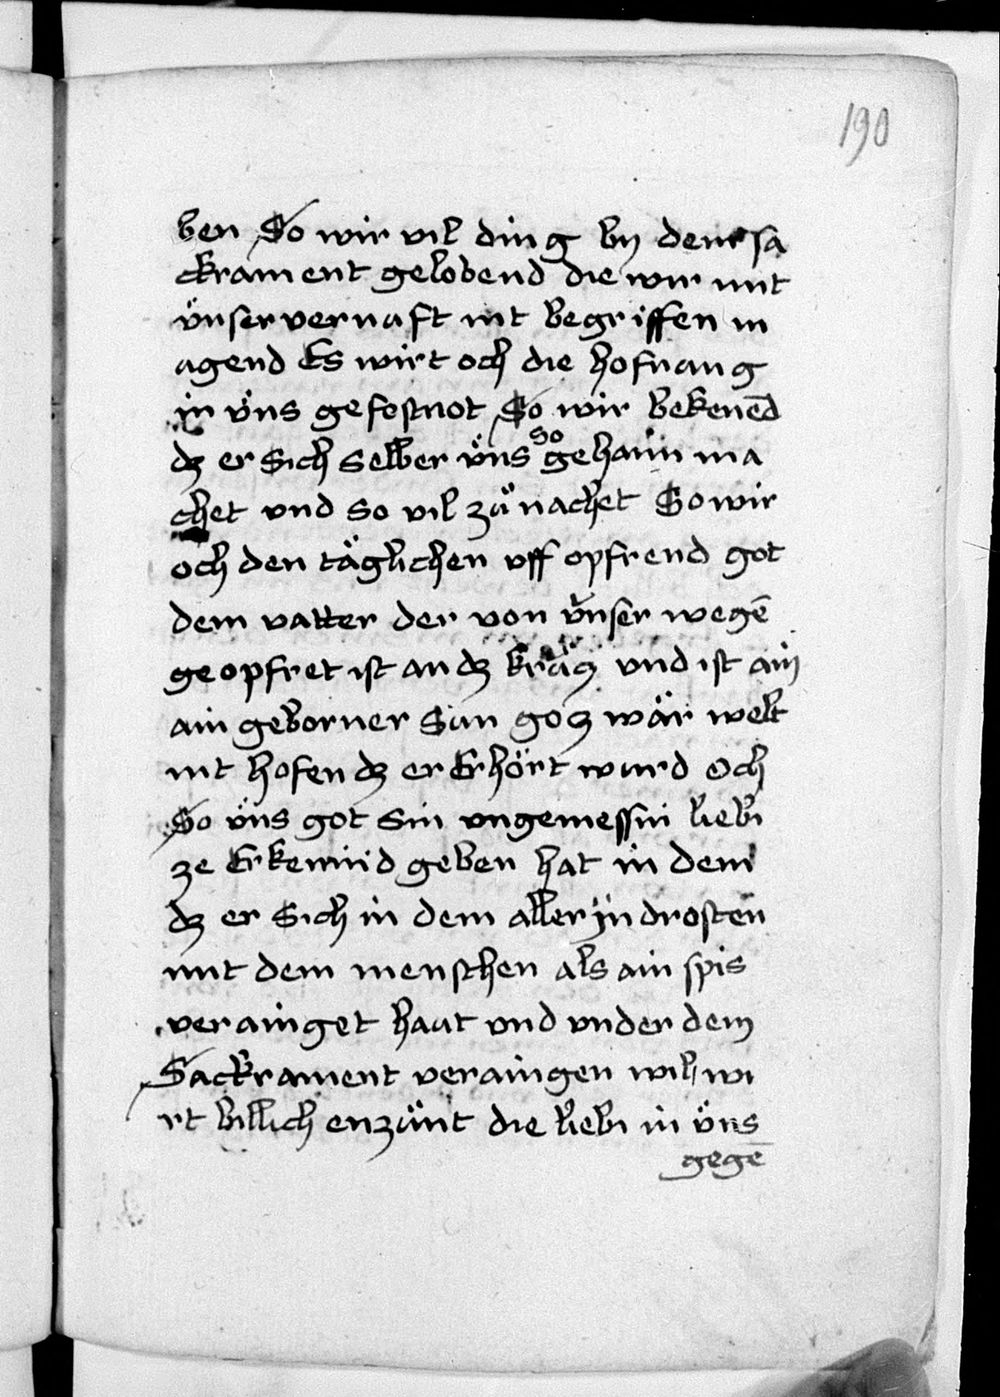 190
ben So wir vil ding by dem sa
ckrament gelobend die wir mit
v̈nser vernuft nit begriffen m
agend Es wirt och die hofnung
in v̈ns gefestnot So wir bekened̄
dz er Sich selber v̈ns so gehaim ma
chet vnd so vil zů nachet So wir
och den täglichen vff opfrend got
dem vatter der von v̈nser wegē
geopfret ist an dz krütz vnd ist ain
ain geborner Sun gotz wär welt
nit hofen dz er Erhört wurd Och
So v̈ns got Sin vngemessin liebi
ze Erkennid geben hat in dem
dz er Sich in dem aller jndrosten
mit dem menschen als ain spis
verainget haut vnd vnder dem
Sackrament veraingen wil, wi
rt billich enzünt die liebi in v̈ns
gegē